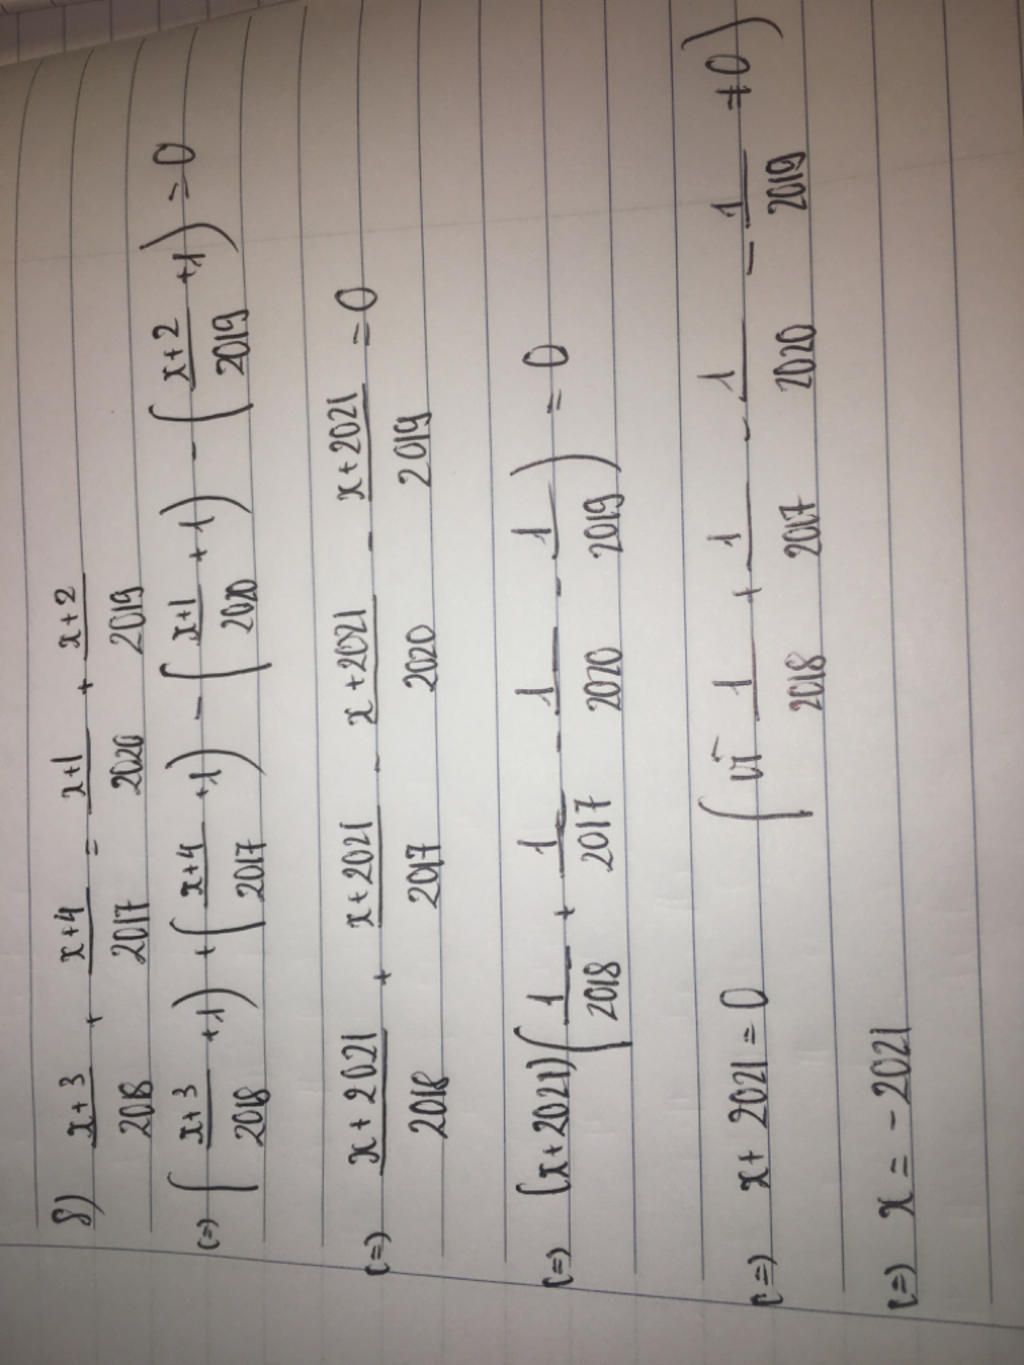 8) x+3/2018 + x+4/2017 = x+1/2020 + x+2/2019
(=) (x+3/2018 +1) + (x+4/2017 +1) - (x+1/2020 +1) - (x+2/2019 +1) = 0
(=) x+2021/2018 + x+2021/2017 - x+2021/2020 - x+2021/2019 = 0
(=) (x+2021)(1/2018 + 1/2017 - 1/2020 - 1/2019) = 0
(=) x+2021=0 (vì 1/2018 + 1/2017 - 1/2020 - 1/2019 ≠0)
(=) x = -2021